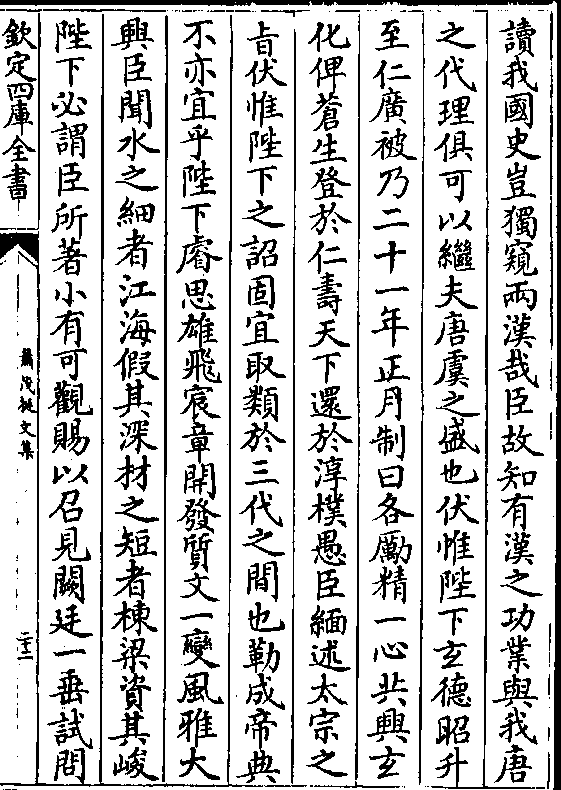 讀我國史豈獨窺兩漢哉臣故知有漢之功業與我唐
之代理俱可以繼夫唐虞之盛也伏惟陛下玄德昭升
至仁廣被乃二十一年正月制曰各勵精一心共興玄
化俾蒼生登於仁壽天下還於淳樸愚臣緬述太宗之
旨伏惟陛下之詔固宜取類於三代之間也勒成帝典
不亦宜乎陛下睿思雄飛宸章開發質文一變風雅大
興臣聞水之細者江海假其深材之短者棟梁資其峻
陛下必謂臣所著小有可觀賜以召見闕廷一垂試問
欽定四庫全書
蕭茂挺文集
二十二